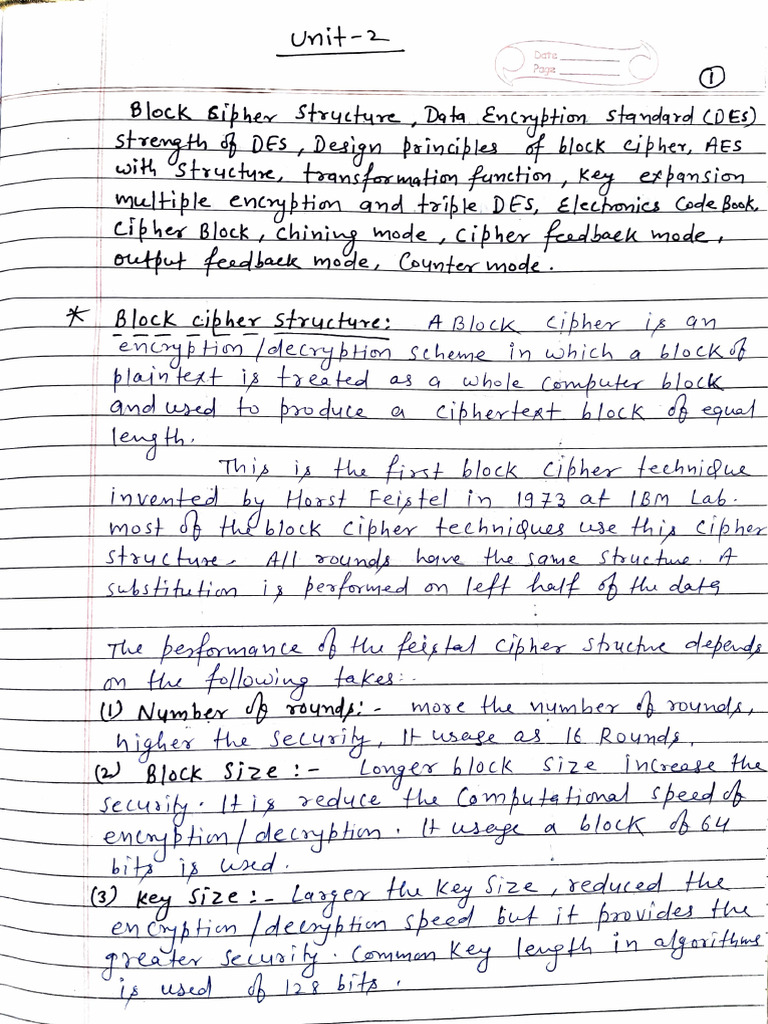 Unit-2
Date
Page
1
Block Cipher Structure, Data Encryption Standard (DES)
strength of DES, Design principles of block cipher, AES
with structure, transformation function, key expansion
multiple encryption and triple DES, Electronics Code Book,
Cipher Block, Chining mode, Cipher feedback mode,
output feedback mode, Counter mode.
* Block cipher structure: A Block Cipher is an
encryption/decryption scheme in which a block of
plaintext is treated as a whole computer block
and used to produce a ciphertext block of equal
length.
This is the first block cipher technique
invented by Horst Feistel in 1973 at IBM Lab.
most of the block cipher techniques use this cipher
structure. All rounds have the same structure. A
substitution is performed on left half of the data
The performance of the feistal cipher structure depends
on the following takes:-
(1) Number of rounds:- more the number of rounds,
higher the security, It usage as 16 Rounds.
(2) Block Size:- Longer block size increase the
security. It is reduce the Computational speed of
encryption/decryption. It usage a block of 64
bits is used.
(3) Key Size:- Larger the Key Size, reduced the
encryption/decryption speed but it provides the
greater security. Common Key length in algorithms
is used of 128 bits.